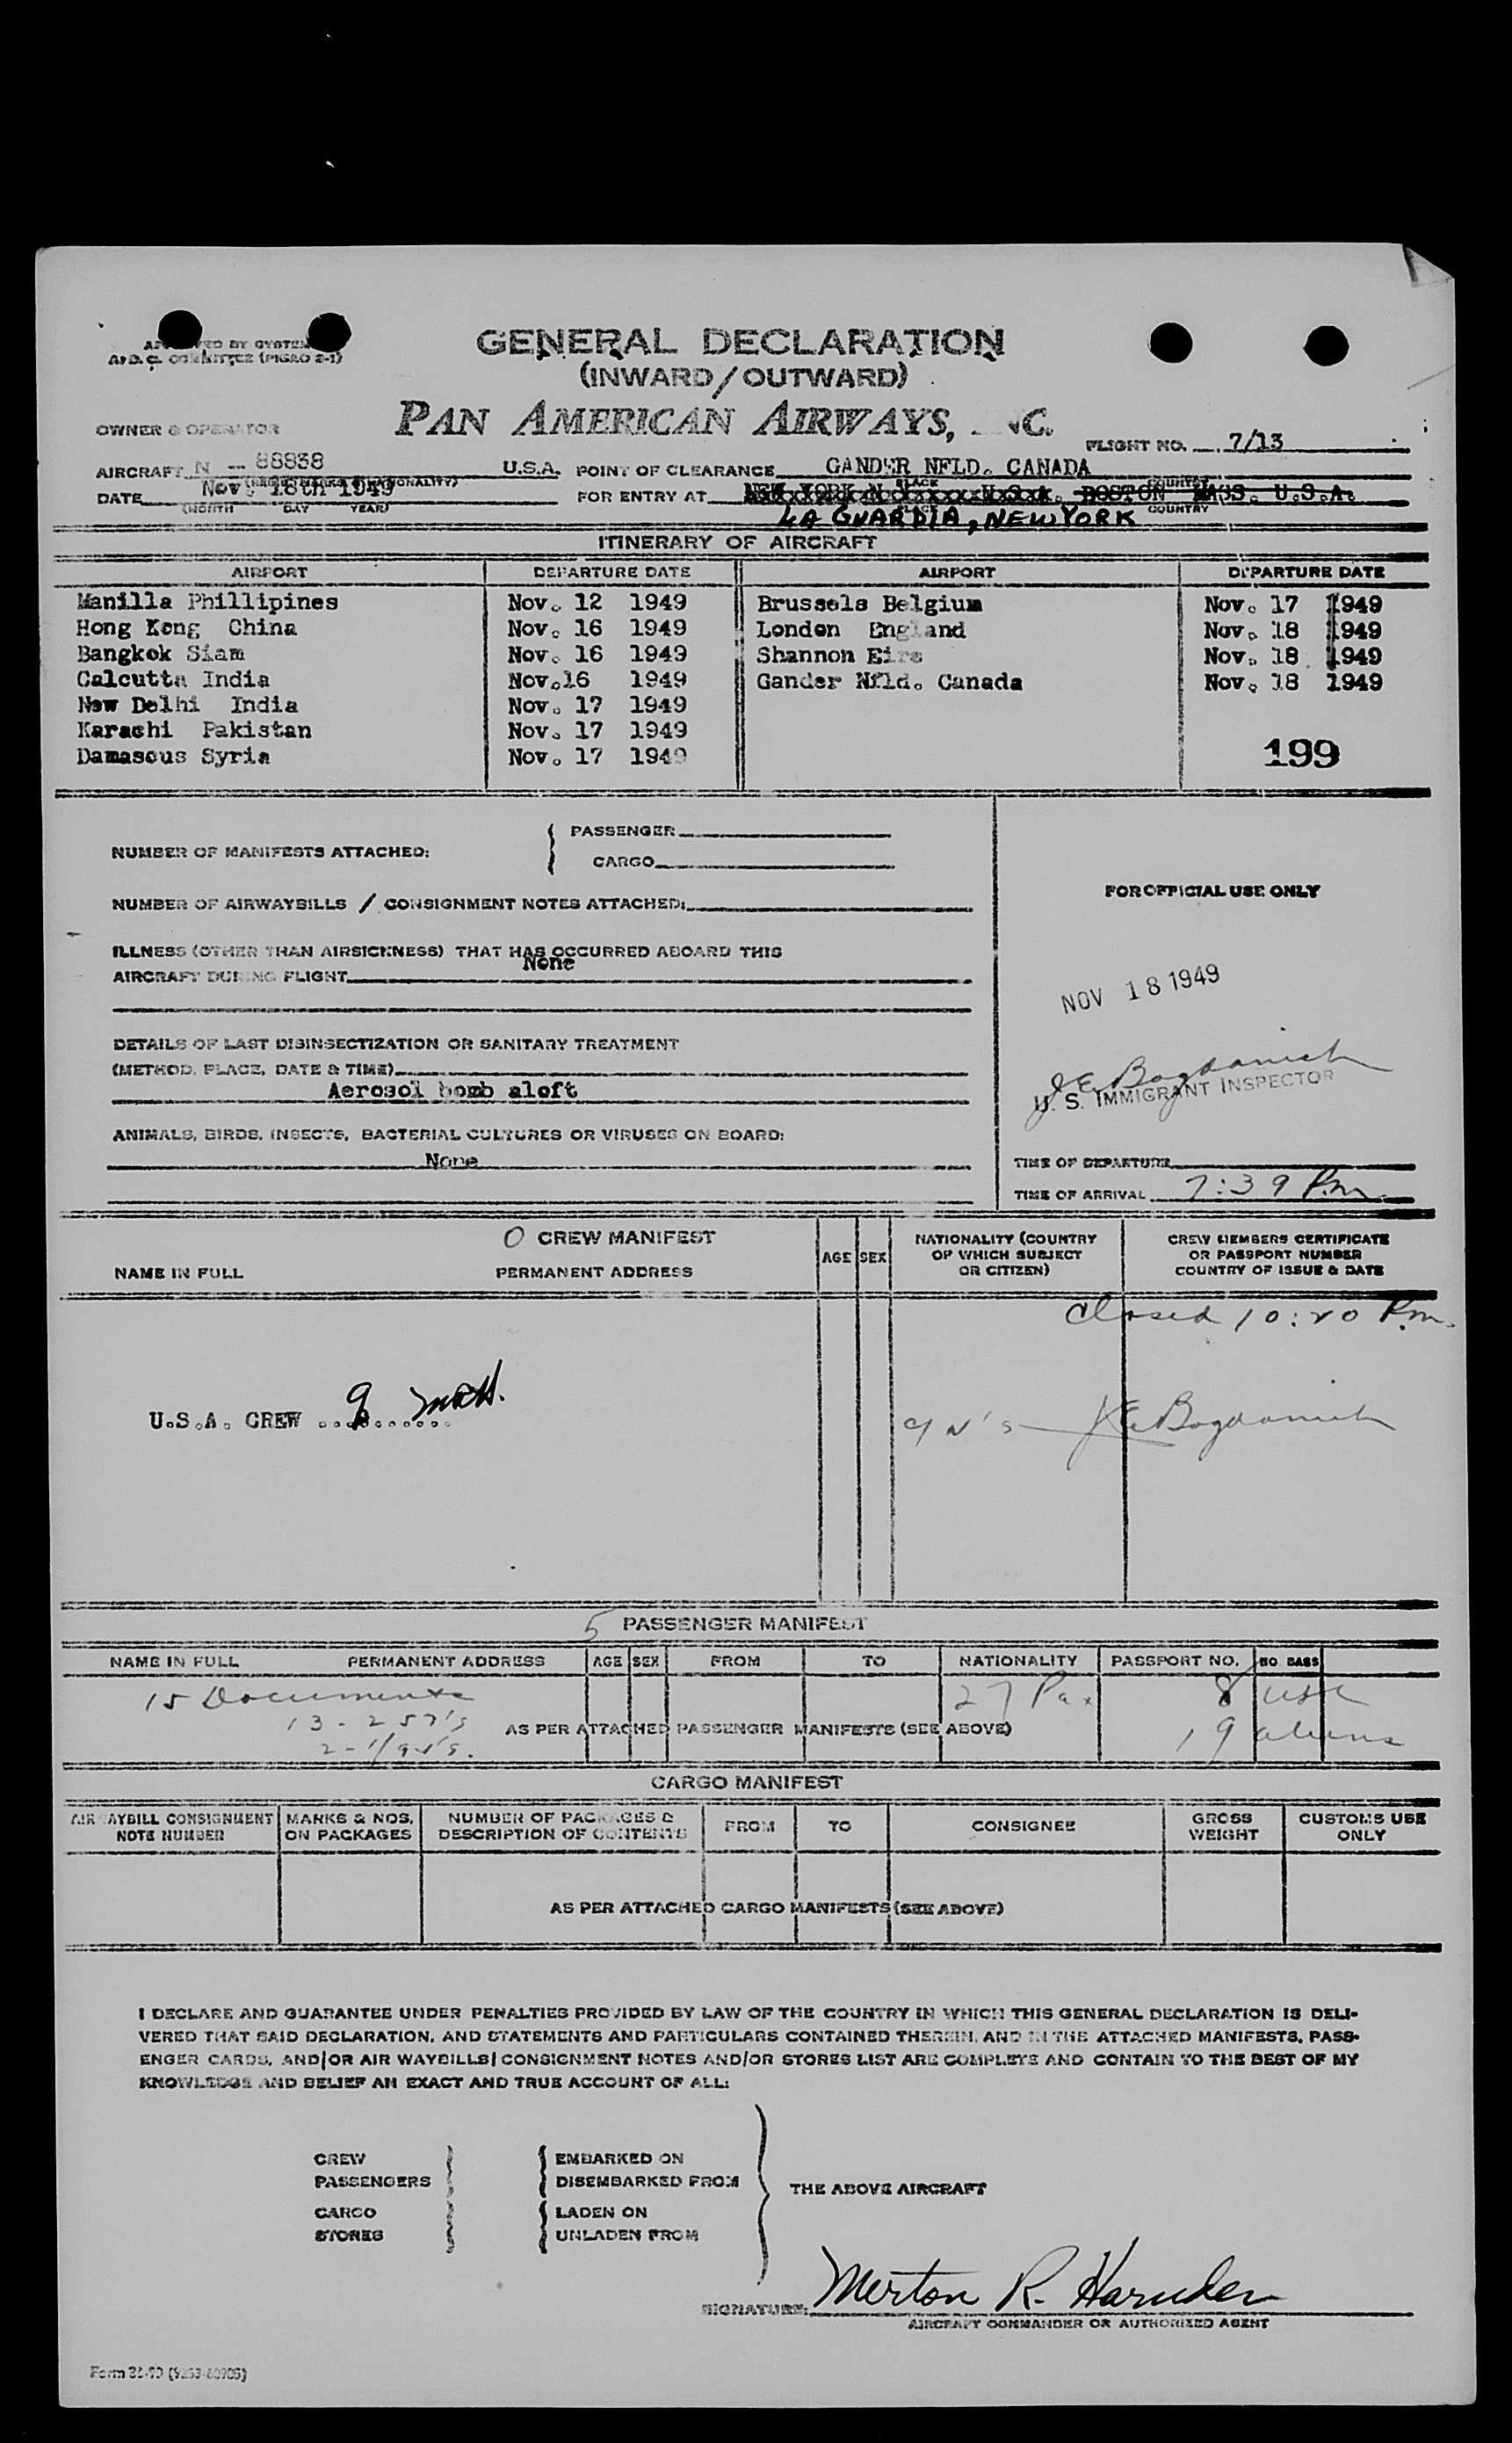 GENERAL DECLARATION
(INWARD/OUTWARD)
PAN AMERICAN AIRWAYS, INC.
OWNER & OPERATOR
FLIGHT NO. 7/13
AIRCRAFT N - 88838 U.S.A. POINT OF CLEARANCE GANDER NFLD. CANADA
DATE Nov. 18th 1949 FOR ENTRY AT NEW YORK N.Y. U.S.A. BOSTON MASS. U.S.A.
(MONTH DAY YEAR) PLACE COUNTRY
LA GUARDIA, NEW YORK
ITINERARY OF AIRCRAFT
AIRPORT DEPARTURE DATE AIRPORT DEPARTURE DATE
Manilla Phillipines Nov. 12 1949 Brussels Belgium Nov. 17 1949
Hong Kong China Nov. 16 1949 London England Nov. 18 1949
Bangkok Siam Nov. 16 1949 Shannon Eire Nov. 18 1949
Calcutta India Nov.16 1949 Gander Nfld. Canada Nov. 18 1949
New Delhi India Nov. 17 1949
Karachi Pakistan Nov. 17 1949
Damascus Syria Nov. 17 1949
199
NUMBER OF MANIFESTS ATTACHED: PASSENGER
CARGO
NUMBER OF AIRWAYBILLS / CONSIGNMENT NOTES ATTACHED:
FOR OFFICIAL USE ONLY
ILLNESS (OTHER THAN AIRSICKNESS) THAT HAS OCCURRED ABOARD THIS
AIRCRAFT DURING FLIGHT None
NOV 18 1949
DETAILS OF LAST DISINSECTIZATION OR SANITARY TREATMENT
(METHOD, PLACE, DATE & TIME)
Aerosol bomb aloft
J E Bogdanich
U. S. IMMIGRANT INSPECTOR
ANIMALS, BIRDS, INSECTS, BACTERIAL CULTURES OR VIRUSES ON BOARD:
None
TIME OF DEPARTURE
TIME OF ARRIVAL 7:39 P.m.
O CREW MANIFEST
NAME IN FULL PERMANENT ADDRESS AGE SEX NATIONALITY (COUNTRY OF WHICH SUBJECT OR CITIZEN) CREW MEMBERS CERTIFICATE OR PASSPORT NUMBER COUNTRY OF ISSUE & DATE
Closed 10:20 P.m.
U.S.A. CREW 9
9 N's J E Bogdanich
5 PASSENGER MANIFEST
NAME IN FULL PERMANENT ADDRESS AGE SEX FROM TO NATIONALITY PASSPORT NO. NO. BAGS
15 Documents 27 Pax 8 USC
13 - 257's AS PER ATTACHED PASSENGER MANIFESTS (SEE ABOVE) 19 aliens
CARGO MANIFEST
AIRWAYBILL CONSIGNMENT NOTE NUMBER MARKS & NOS. ON PACKAGES NUMBER OF PACKAGES & DESCRIPTION OF CONTENTS FROM TO CONSIGNEE GROSS WEIGHT CUSTOMS USE ONLY
AS PER ATTACHED CARGO MANIFESTS (SEE ABOVE)
I DECLARE AND GUARANTEE UNDER PENALTIES PROVIDED BY LAW OF THE COUNTRY IN WHICH THIS GENERAL DECLARATION IS DELI-
VERED THAT SAID DECLARATION, AND STATEMENTS AND PARTICULARS CONTAINED THEREIN, AND IN THE ATTACHED MANIFESTS, PASS-
ENGER CARDS, AND/OR AIR WAYBILLS/CONSIGNMENT NOTES AND/OR STORES LIST ARE COMPLETE AND CONTAIN TO THE BEST OF MY
KNOWLEDGE AND BELIEF AN EXACT AND TRUE ACCOUNT OF ALL:
CREW EMBARKED ON
PASSENGERS DISEMBARKED FROM
THE ABOVE AIRCRAFT
CARGO LADEN ON
STORES UNLADEN FROM
SIGNATURE: Merton R. Harnden
AIRCRAFT COMMANDER OR AUTHORIZED AGENT